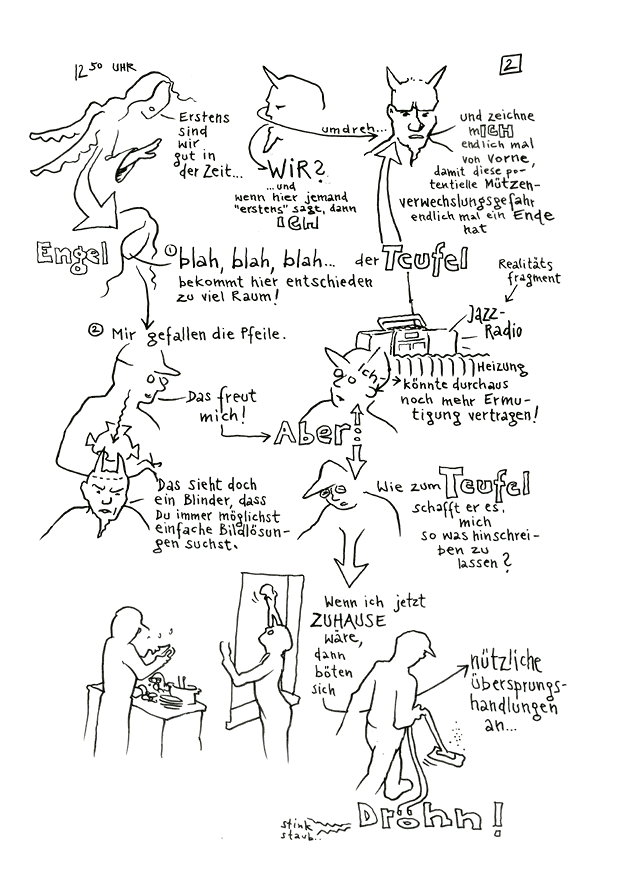 12 50 UHR
2
Erstens
sind
wir
gut in
der Zeit...
umdreh...
WIR?
...und
wenn hier jemand
"erstens" sagt, dann
ICH
und zeichne
mICH
endlich mal
von vorne,
damit diese po-
tentielle Mützen-
verwechslungsgefahr
endlich mal ein Ende
hat
Engel
① blah, blah, blah...
bekommt hier entschieden
zu viel Raum!
der Teufel
Realitäts
fragment
② Mir gefallen die Pfeile.
Jazz-
Radio
Heizung
Das freut
mich!
Ich
könnte durchaus
noch mehr Ermu-
tigung vertragen!
Aber:
Das sieht doch
ein Blinder, dass
Du immer möglichst
einfache Bildlösun-
gen suchst.
Wie zum Teufel
schafft er es,
mich
so was hinschrei-
ben zu
lassen?
Wenn ich jetzt
ZUHAUSE
wäre,
dann
böten
sich
nützliche
Übersprungs-
handlungen
an...
stink
staub..
Dröhn!